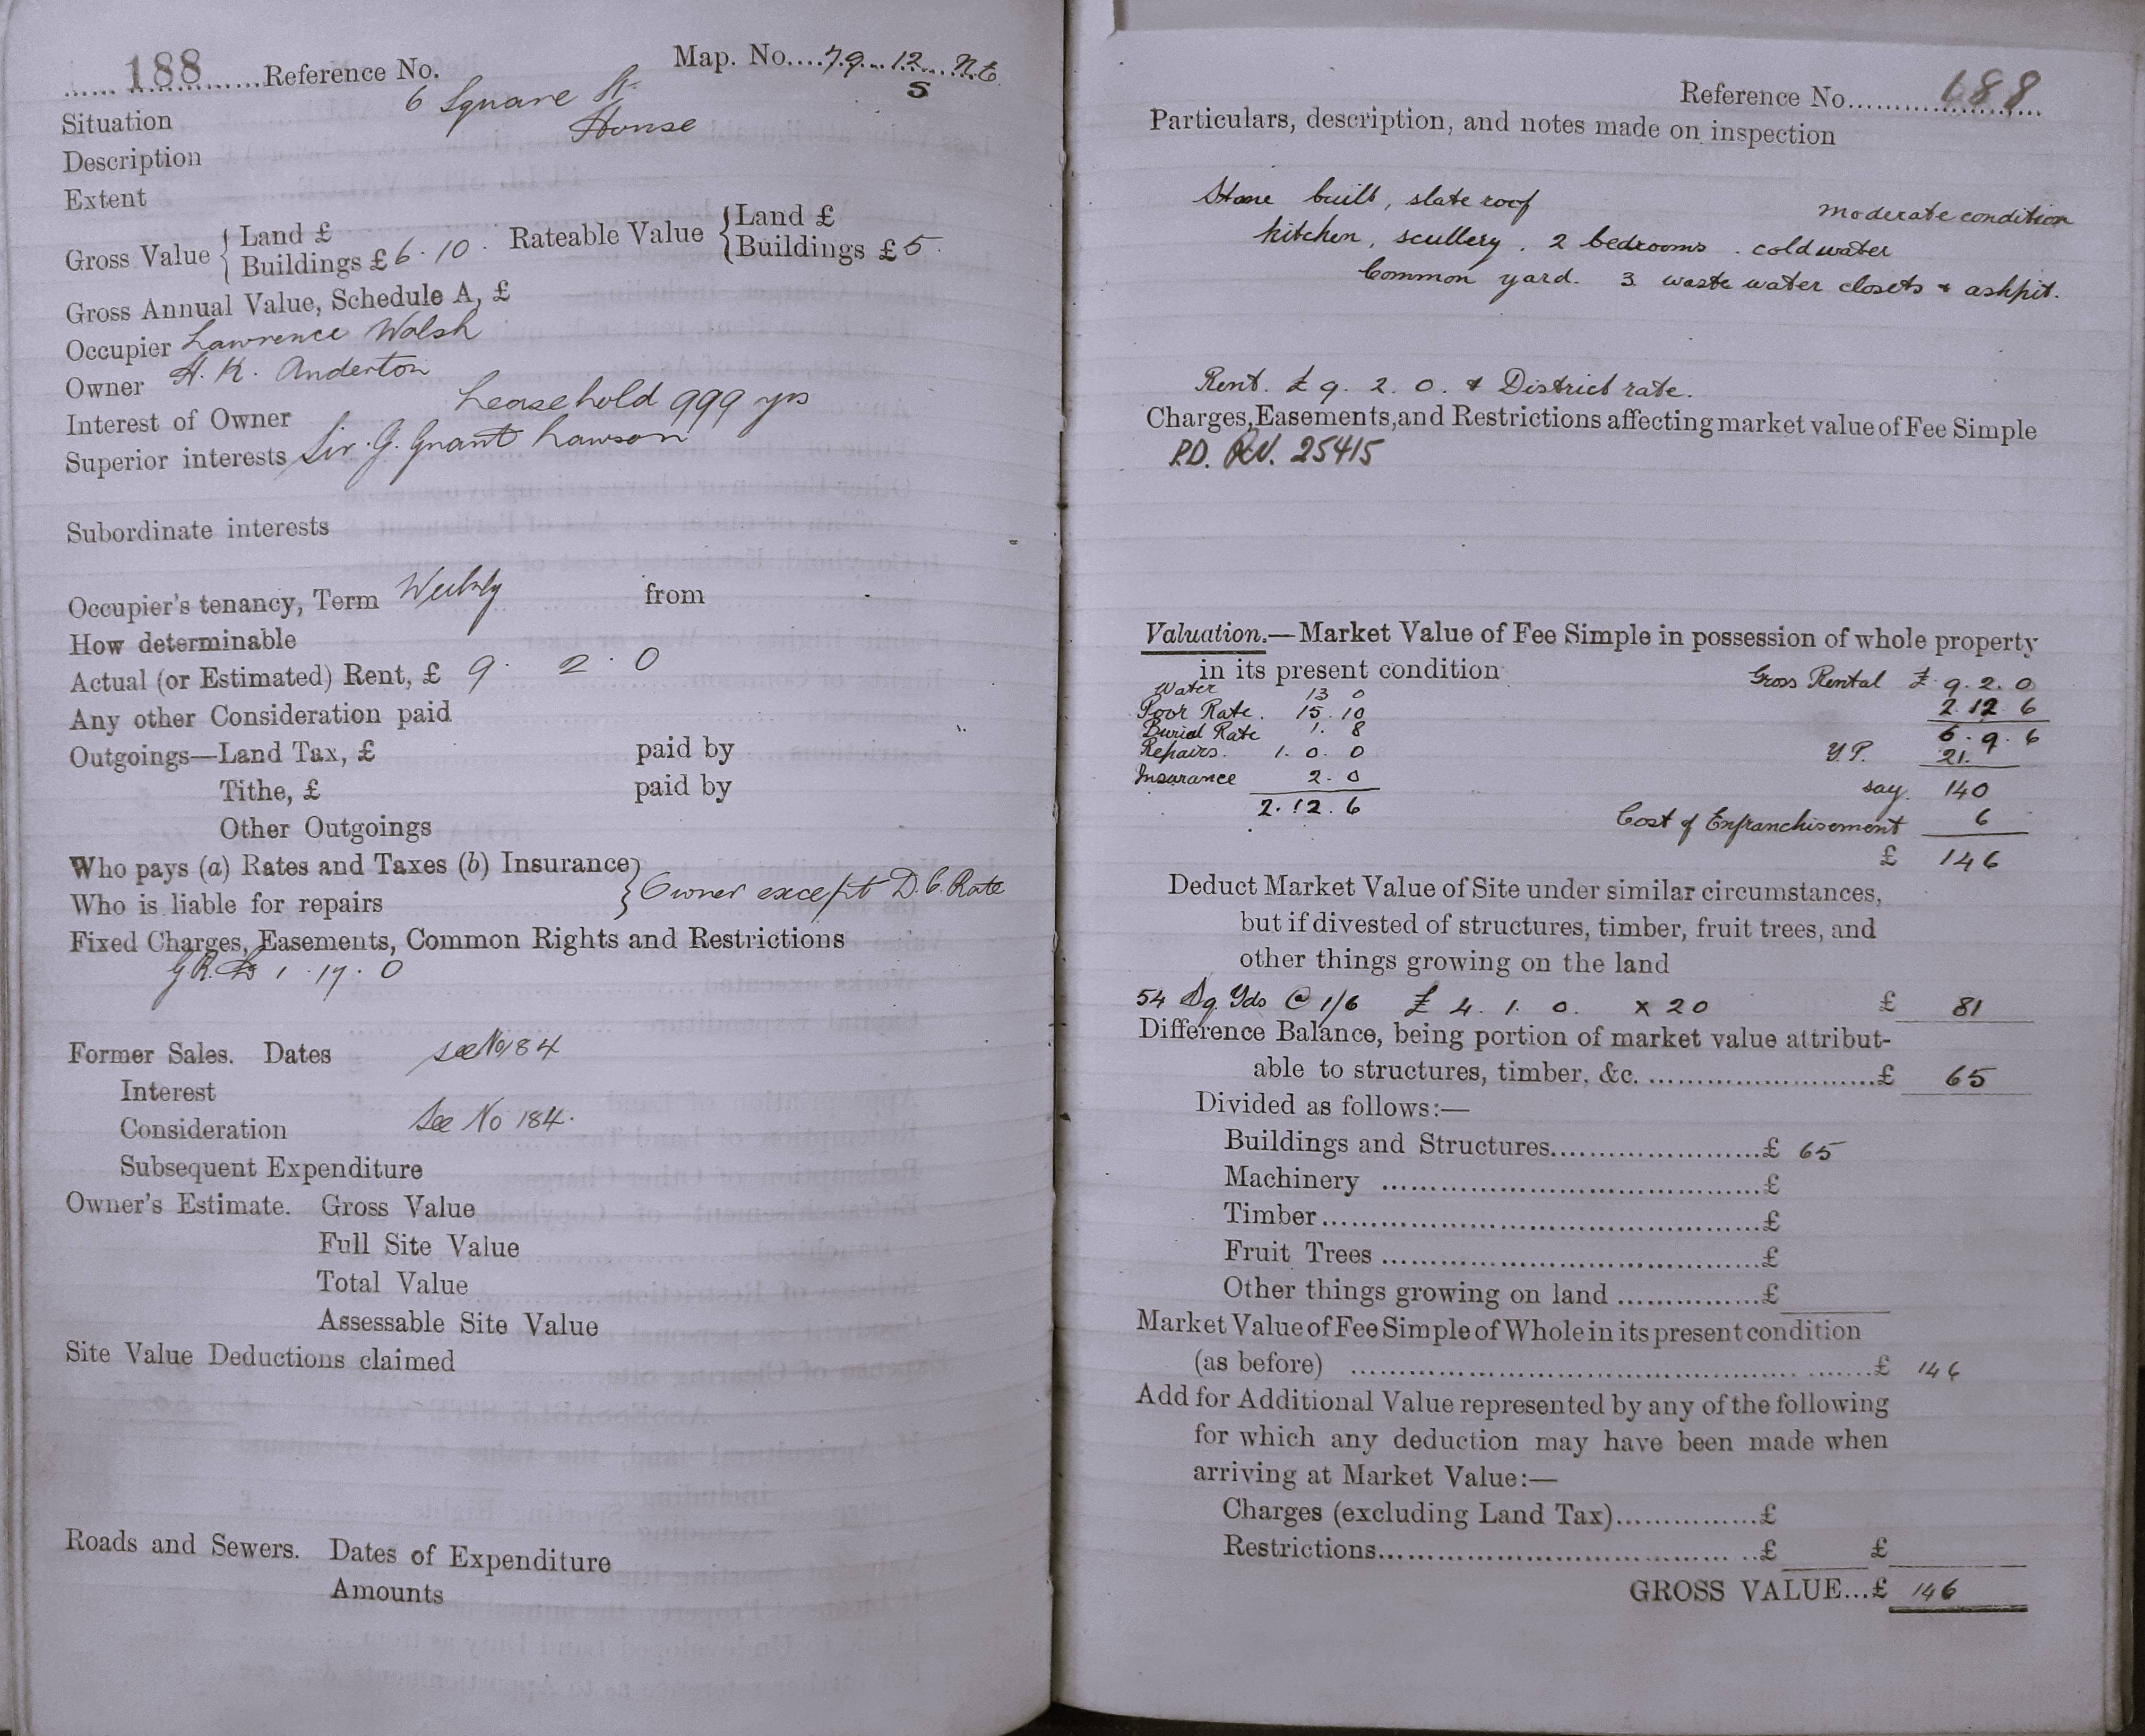 188 Reference No. Map. No. 79 12 N.E.
S
6 Square St.
Situation
House
Description
Extent
Gross Value { Land £
Buildings £ 6 . 10 . Rateable Value { Land £
Buildings £ 5
Gross Annual Value, Schedule A, £
Occupier Lawrence Walsh
Owner H. K. Anderton
Interest of Owner Leasehold 999 yrs
Superior interests Sir. G. Grant Lawson
Subordinate interests
Occupier's tenancy, Term Weekly from
How determinable
Actual (or Estimated) Rent, £ 9 . 2 . 0
Any other Consideration paid
Outgoings—Land Tax, £ paid by
Tithe, £ paid by
Other Outgoings
Who pays (a) Rates and Taxes (b) Insurance
Who is liable for repairs } Owner except D. C. Rate
Fixed Charges, Easements, Common Rights and Restrictions
G.R. £ 1 . 17 . 0
Former Sales. Dates see No 184
Interest
Consideration See No 184.
Subsequent Expenditure
Owner's Estimate. Gross Value
Full Site Value
Total Value
Assessable Site Value
Site Value Deductions claimed
Roads and Sewers. Dates of Expenditure
Amounts
Reference No. 188
Particulars, description, and notes made on inspection
Stone built, slate roof moderate condition
kitchen, scullery, 2 bedrooms. cold water
Common yard. 3 waste water closets & ashpit.
Rent. £ 9. 2. 0. & District rate.
Charges, Easements, and Restrictions affecting market value of Fee Simple
P.D. 25415
Valuation.—Market Value of Fee Simple in possession of whole property
in its present condition
Gross Rental £ 9. 2. 0
Water 13 0
Poor Rate. 15. 10 2. 12 6
Burial Rate 1. 8 6. 9. 6
Repairs. 1. 0. 0 Y.P. 21.
Insurance 2. 0 say. 140
2. 12. 6 Cost of Enfranchisement 6
£ 146
Deduct Market Value of Site under similar circumstances,
but if divested of structures, timber, fruit trees, and
other things growing on the land
54 Sq Yds @ 1/6 £ 4. 1. 0. x 20 £ 81
Difference Balance, being portion of market value attribut-
able to structures, timber, &c. £ 65
Divided as follows:—
Buildings and Structures £ 65
Machinery £
Timber £
Fruit Trees £
Other things growing on land £
Market Value of Fee Simple of Whole in its present condition
(as before) £ 146
Add for Additional Value represented by any of the following
for which any deduction may have been made when
arriving at Market Value:—
Charges (excluding Land Tax) £
Restrictions £ £
GROSS VALUE...£ 146